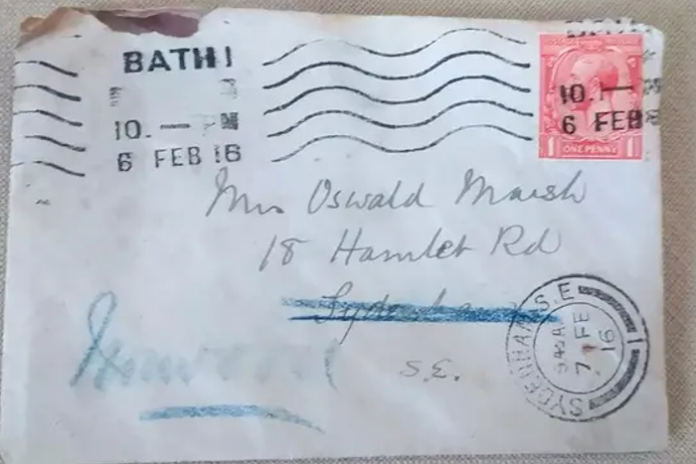 BATH
10. — PM
6 FEB 16
10. —
6 FEB
ONE PENNY
1 1
Mrs Oswald Marsh
18 Hamlet Rd
Sydenham
S.E.
SYDENHAM S.E.
9 45 AM
7 FE
16
1